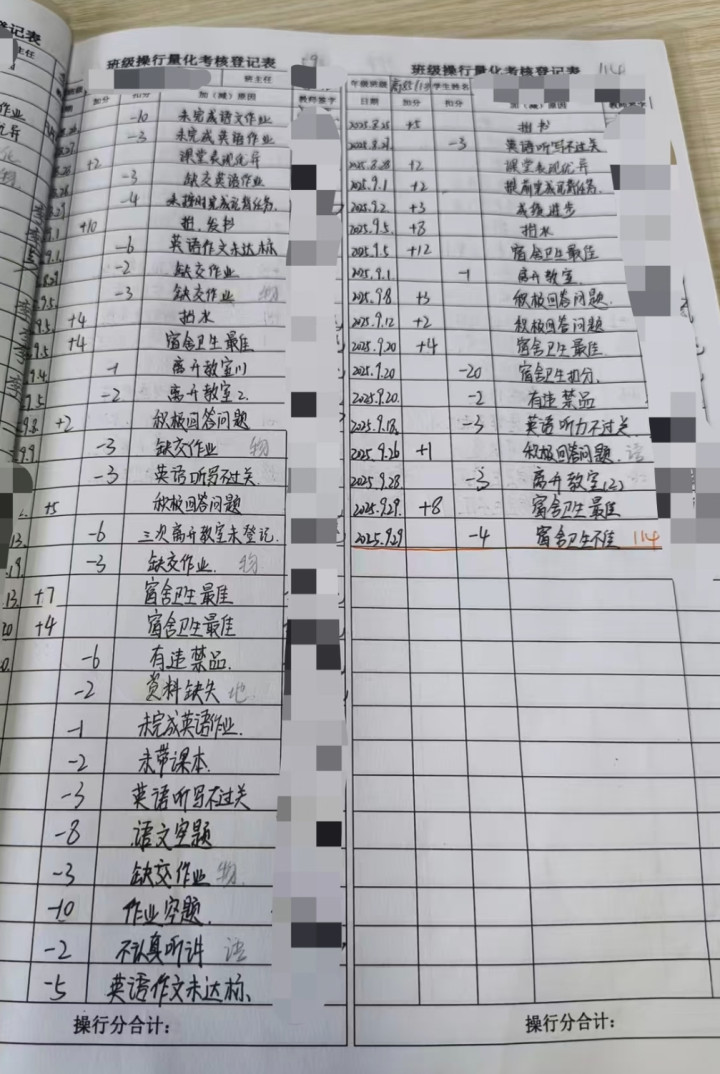 登记表
主任
作业
班级操行量化考核登记表
班主任
加分 扣分 加（减）原因 教师签字
-10 未完成语文作业
-3 未完成英语作业
+2 课堂表现优异
-3 缺交英语作业
-4 未按时完成完育任务
+10 担、发书
-6 英语作文未达标
-2 缺交作业
-3 缺交作业 物
9.5 +4 担水
9.5 +4 宿舍卫生最佳
9.4 -1 离开教室(1)
9.5 -2 离开教室2.
9.8 +2 积极回答问题
9.9 -3 缺交作业 物
-3 英语听写不过关.
+5 积极回答问题
13. -6 三次离开教室未登记.
19. -3 缺交作业. 物
13. +7 宿舍卫生最佳
20 +4 宿舍卫生最佳
-6 有违禁品.
-2 资料缺失 地.
-1 未完成英语作业.
-2 未带课本.
-3 英语听写不过关
-8 语文空题
-3 缺交作业 物.
-10 作业空题.
-2 不认真听讲 语
-5 英语作文未达标、
操行分合计：
班级操行量化考核登记表 114
年级班级 学生姓名
日期 加分 扣分 加（减）原因 教师签字
2025.8.25 +5 担书
2025.8.27 -3 英语听写不过关
2025.8.28 +2 课堂表现优异
2025.9.1 +2
2025.9.2 +3 成绩进步
2025.9.5. +8 担水
2025.9.5 +12 宿舍卫生最佳
2025.9.1. -1 离开教室.
2025.9.8 +3 积极回答问题.
2025.9.12 +2 积极回答问题
2025.9.20 +4 宿舍卫生最佳.
2025.9.20 -20 宿舍卫生扣分.
2025.9.20. -2 有违禁品
2025.9.18. -3 英语听力不过关.
2025.9.26 +1 积极回答问题. 语
2025.9.28 -3 离开教室(2)
2025.9.29. +8 宿舍卫生最佳
2025.9.29 -4 宿舍卫生不佳 114
操行分合计：